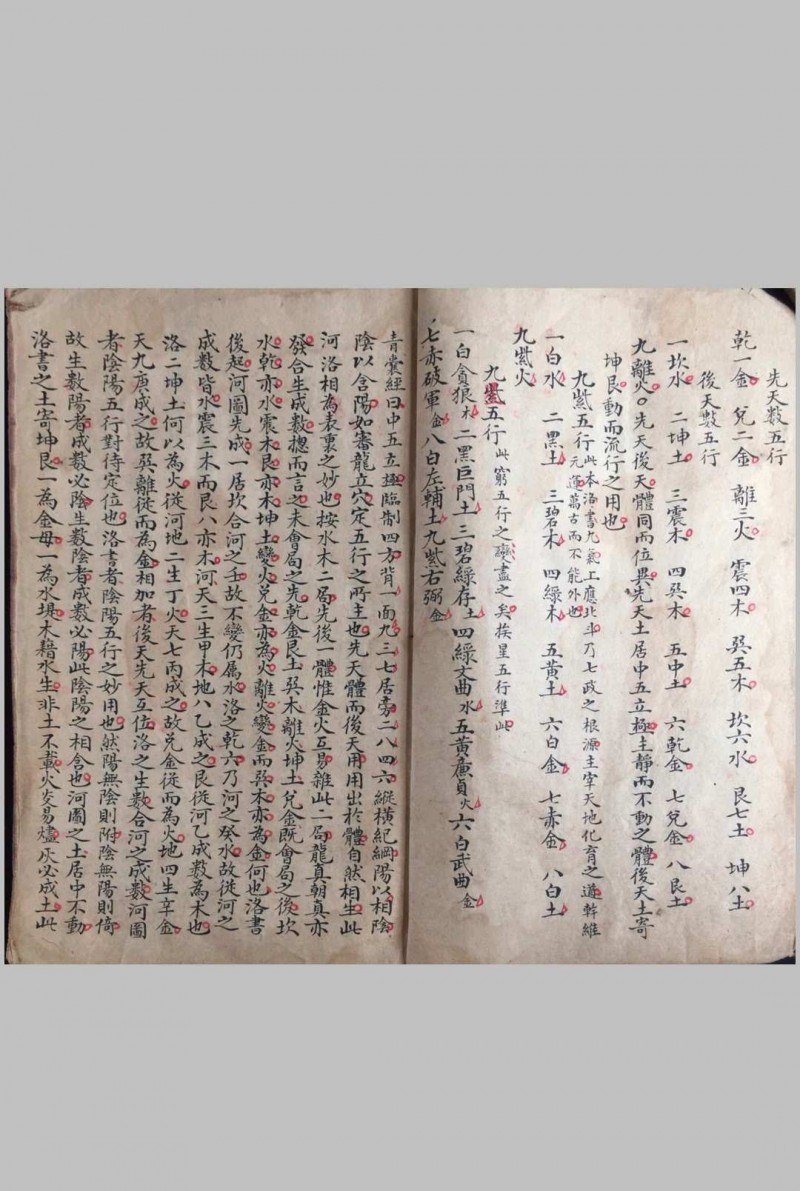 先天數五行
乾一金 兌二金 離三火 震四木 巽五木 坎六水 艮七土 坤八土
後天數五行
一坎水 二坤土 三震木 四巽木 五中土 六乾金 七兌金 八艮土
九離火○先天後天體同而位異先天土居中五立極主靜而不動之體後天土寄
坤艮動而流行之用也
九紫五行此本洛書九氣上應北斗乃七政之根源主宰天地化育之道幹維
元運萬古而不能外也
一白水 二黑土 三碧木 四綠木 五黃土 六白金 七赤金 八白土
九紫火
九紫五行此窮五行之變盡之矣挨星五行準此
一白貪狼木 二黑巨門土 三碧綠存土 四綠文曲水 五黃廉貞火 六白武曲金
七赤破軍金 八白左輔土 九紫右弼金
青囊經曰中五立極臨制四方背一面九三七居旁二八四六縱橫紀綱陽以相陰
陰以含陽如審龍立穴定五行之所主也先天體而後天用用出於體自然相生此
河洛相為表裏之妙也按水木二局先後一體惟金火互易雜此二局龍真朝真亦
發合生成數摠而言之未會局之先乾金艮土巽木離火坤土兌金既會局之後坎
水乾亦水震木艮亦木坤土變火兌金亦為火離火變金而巽木亦為金何也洛書
後起河圖先成一居坎合河之壬故不變仍属水洛之乾六乃河之癸水故從河之
成數皆水震三木而艮八亦木河天三生甲木地八乙成之艮從河乙成數為木也
洛二坤土何以為火從河地二生丁火天七丙成之故兌金從而為火地四生辛金
天九庚成之故巽離從而為金相加者後天先天互位洛之生數合河之成數河圖
者陰陽五行對待定位也洛書者陰陽五行之妙用也然陽無陰則附陰無陽則倚
故生數陽者成數必陰生數陰者成數必陽此陰陽之相含也河圖之土居中不動
洛書之土寄坤艮一為金母一為水堤木藉水生非土不載火炎易燼灰必成土此